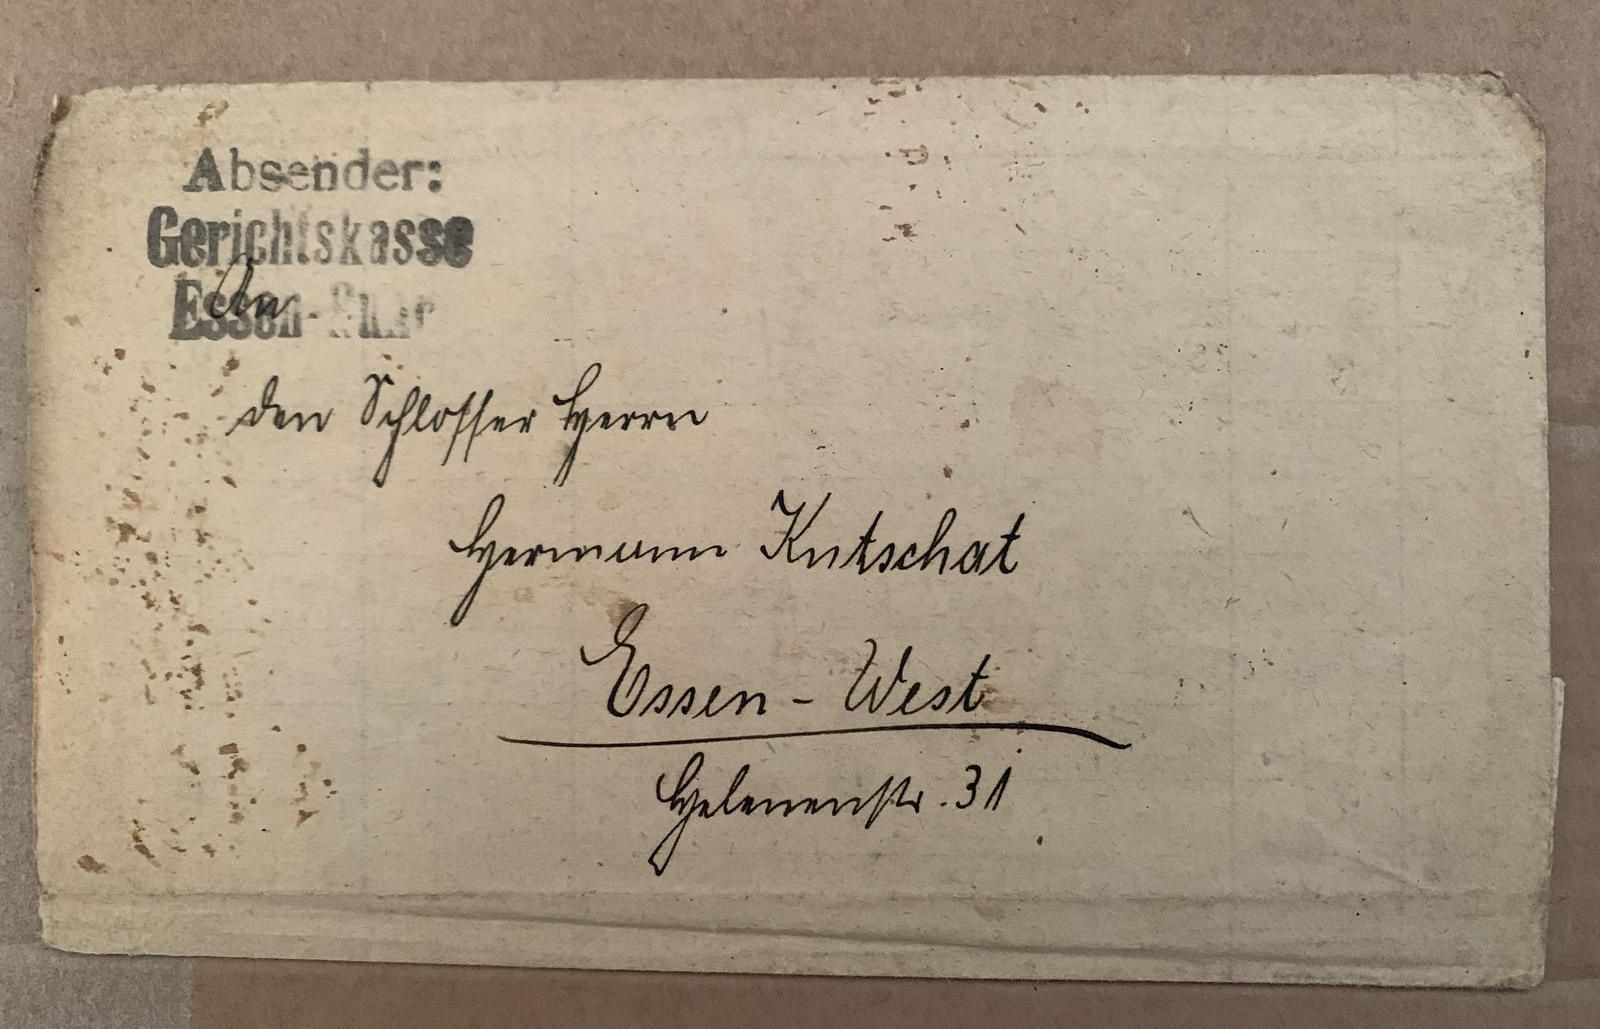 Absender:
Gerichtskasse
Essen-Ruhr
An
den Schlosser Herrn
Hermann Kutschat
Essen - West
Helenenstr. 31